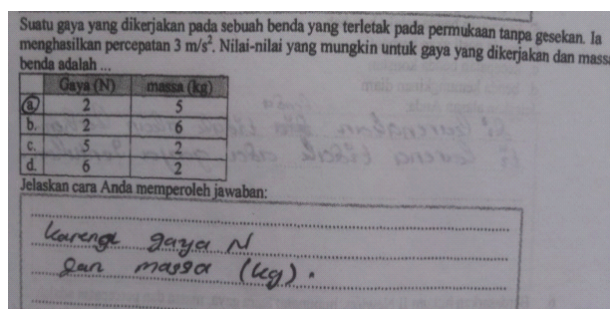 Suatu gaya yang dikerjakan pada sebuah benda yang terletak pada permukaan tanpa gesekan. Ia
menghasilkan percepatan 3 m/s². Nilai-nilai yang mungkin untuk gaya yang dikerjakan dan massa
benda adalah ...
Gaya (N) massa (kg)
a. 2 5
b. 2 6
c. 5 2
d. 6 2
Jelaskan cara Anda memperoleh jawaban:
karena gaya N
dan massa (kg).